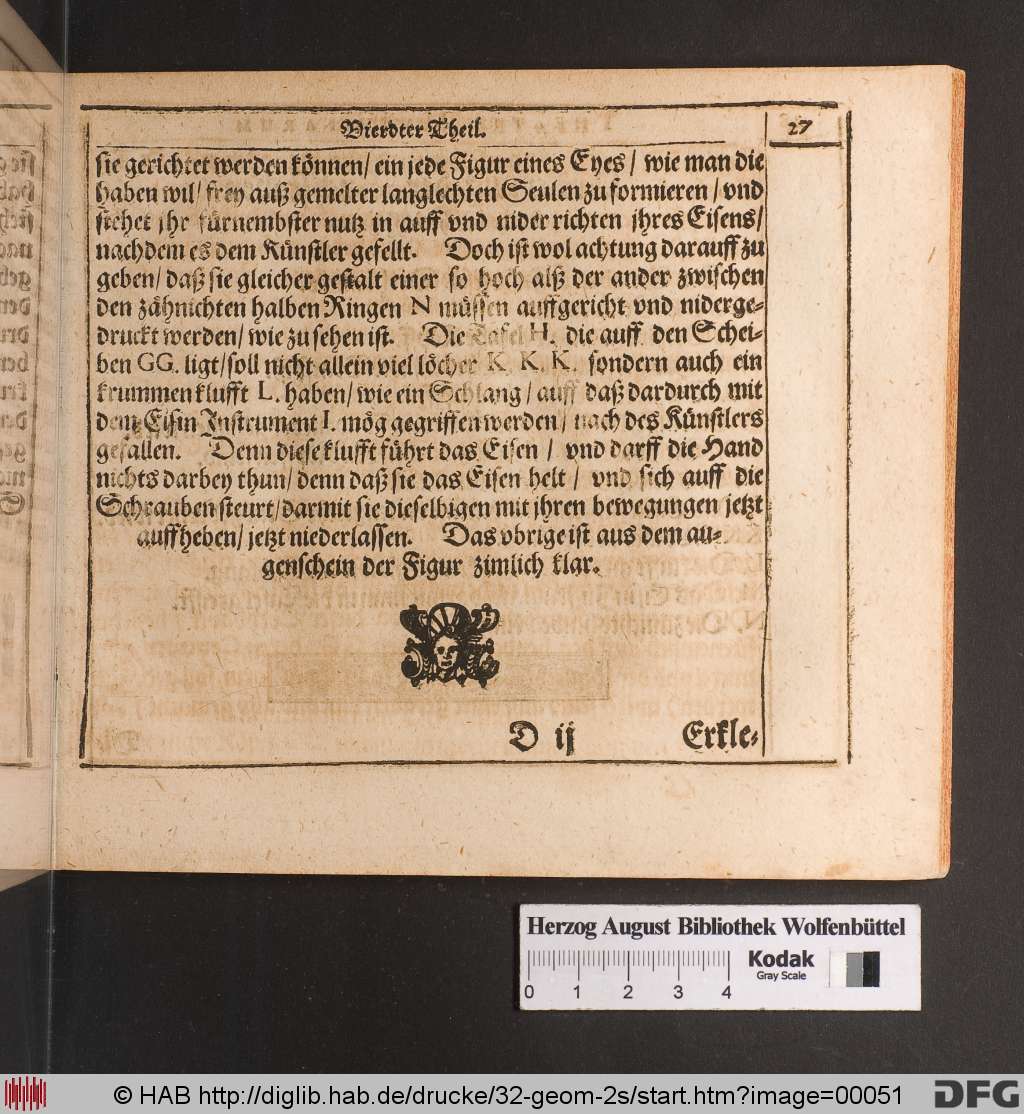 Vierdter Theil.
27
sie gerichtet werden können/ ein jede Figur eines Eyes/ wie man die
haben wil/ frey auß gemelter langlechten Seulen zu formieren/ vnd
stehet jhr fürnembster nutz in auff vnd nider richten jhres Eisens/
nachdem es dem Künstler gefellt. Doch ist wol achtung darauff zu
geben/ daß sie gleicher gestalt einer so hoch alß der ander zwischen
den zähnichten halben Ringen N müssen auffgericht vnd niderge-
druckt werden/ wie zu sehen ist. Die Tafel H. die auff den Schei-
ben GG. ligt/ soll nicht allein viel löcher K. K. K. sondern auch ein
krummen klufft L. haben/ wie ein Schlang/ auff daß dardurch mit
dem Eisin Instrument I. mög gegriffen werden/ nach des Künstlers
gefallen. Denn diese klufft führt das Eisen/ vnd darff die Hand
nichts darbey thun/ denn daß sie das Eisen helt/ vnd sich auff die
Schrauben steurt/ darmit sie dieselbigen mit jhren bewegungen jetzt
auffheben/ jetzt niederlassen. Das vbrige ist aus dem au-
genschein der Figur zimlich klar.
D ij
Erkle-
Herzog August Bibliothek Wolfenbüttel
Kodak
Gray Scale
0 1 2 3 4
© HAB http://diglib.hab.de/drucke/32-geom-2s/start.htm?image=00051
DFG